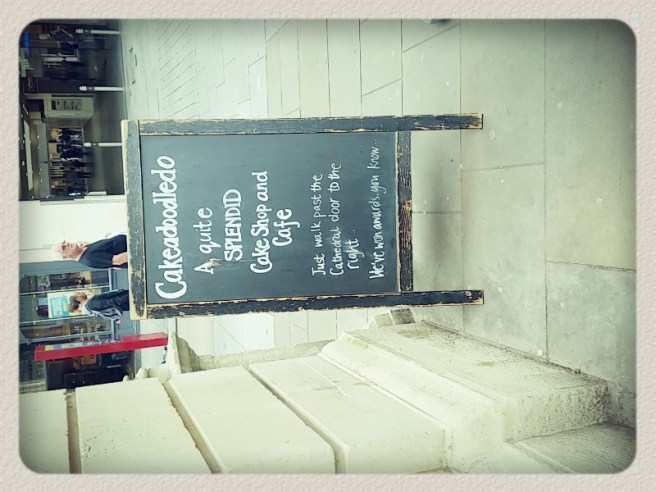 Cakeadoodledo
A quite
SPLENDID
Cake Shop and
Cafe
Just walk past the
Cathedral door to the
right
We've won awards, you know...